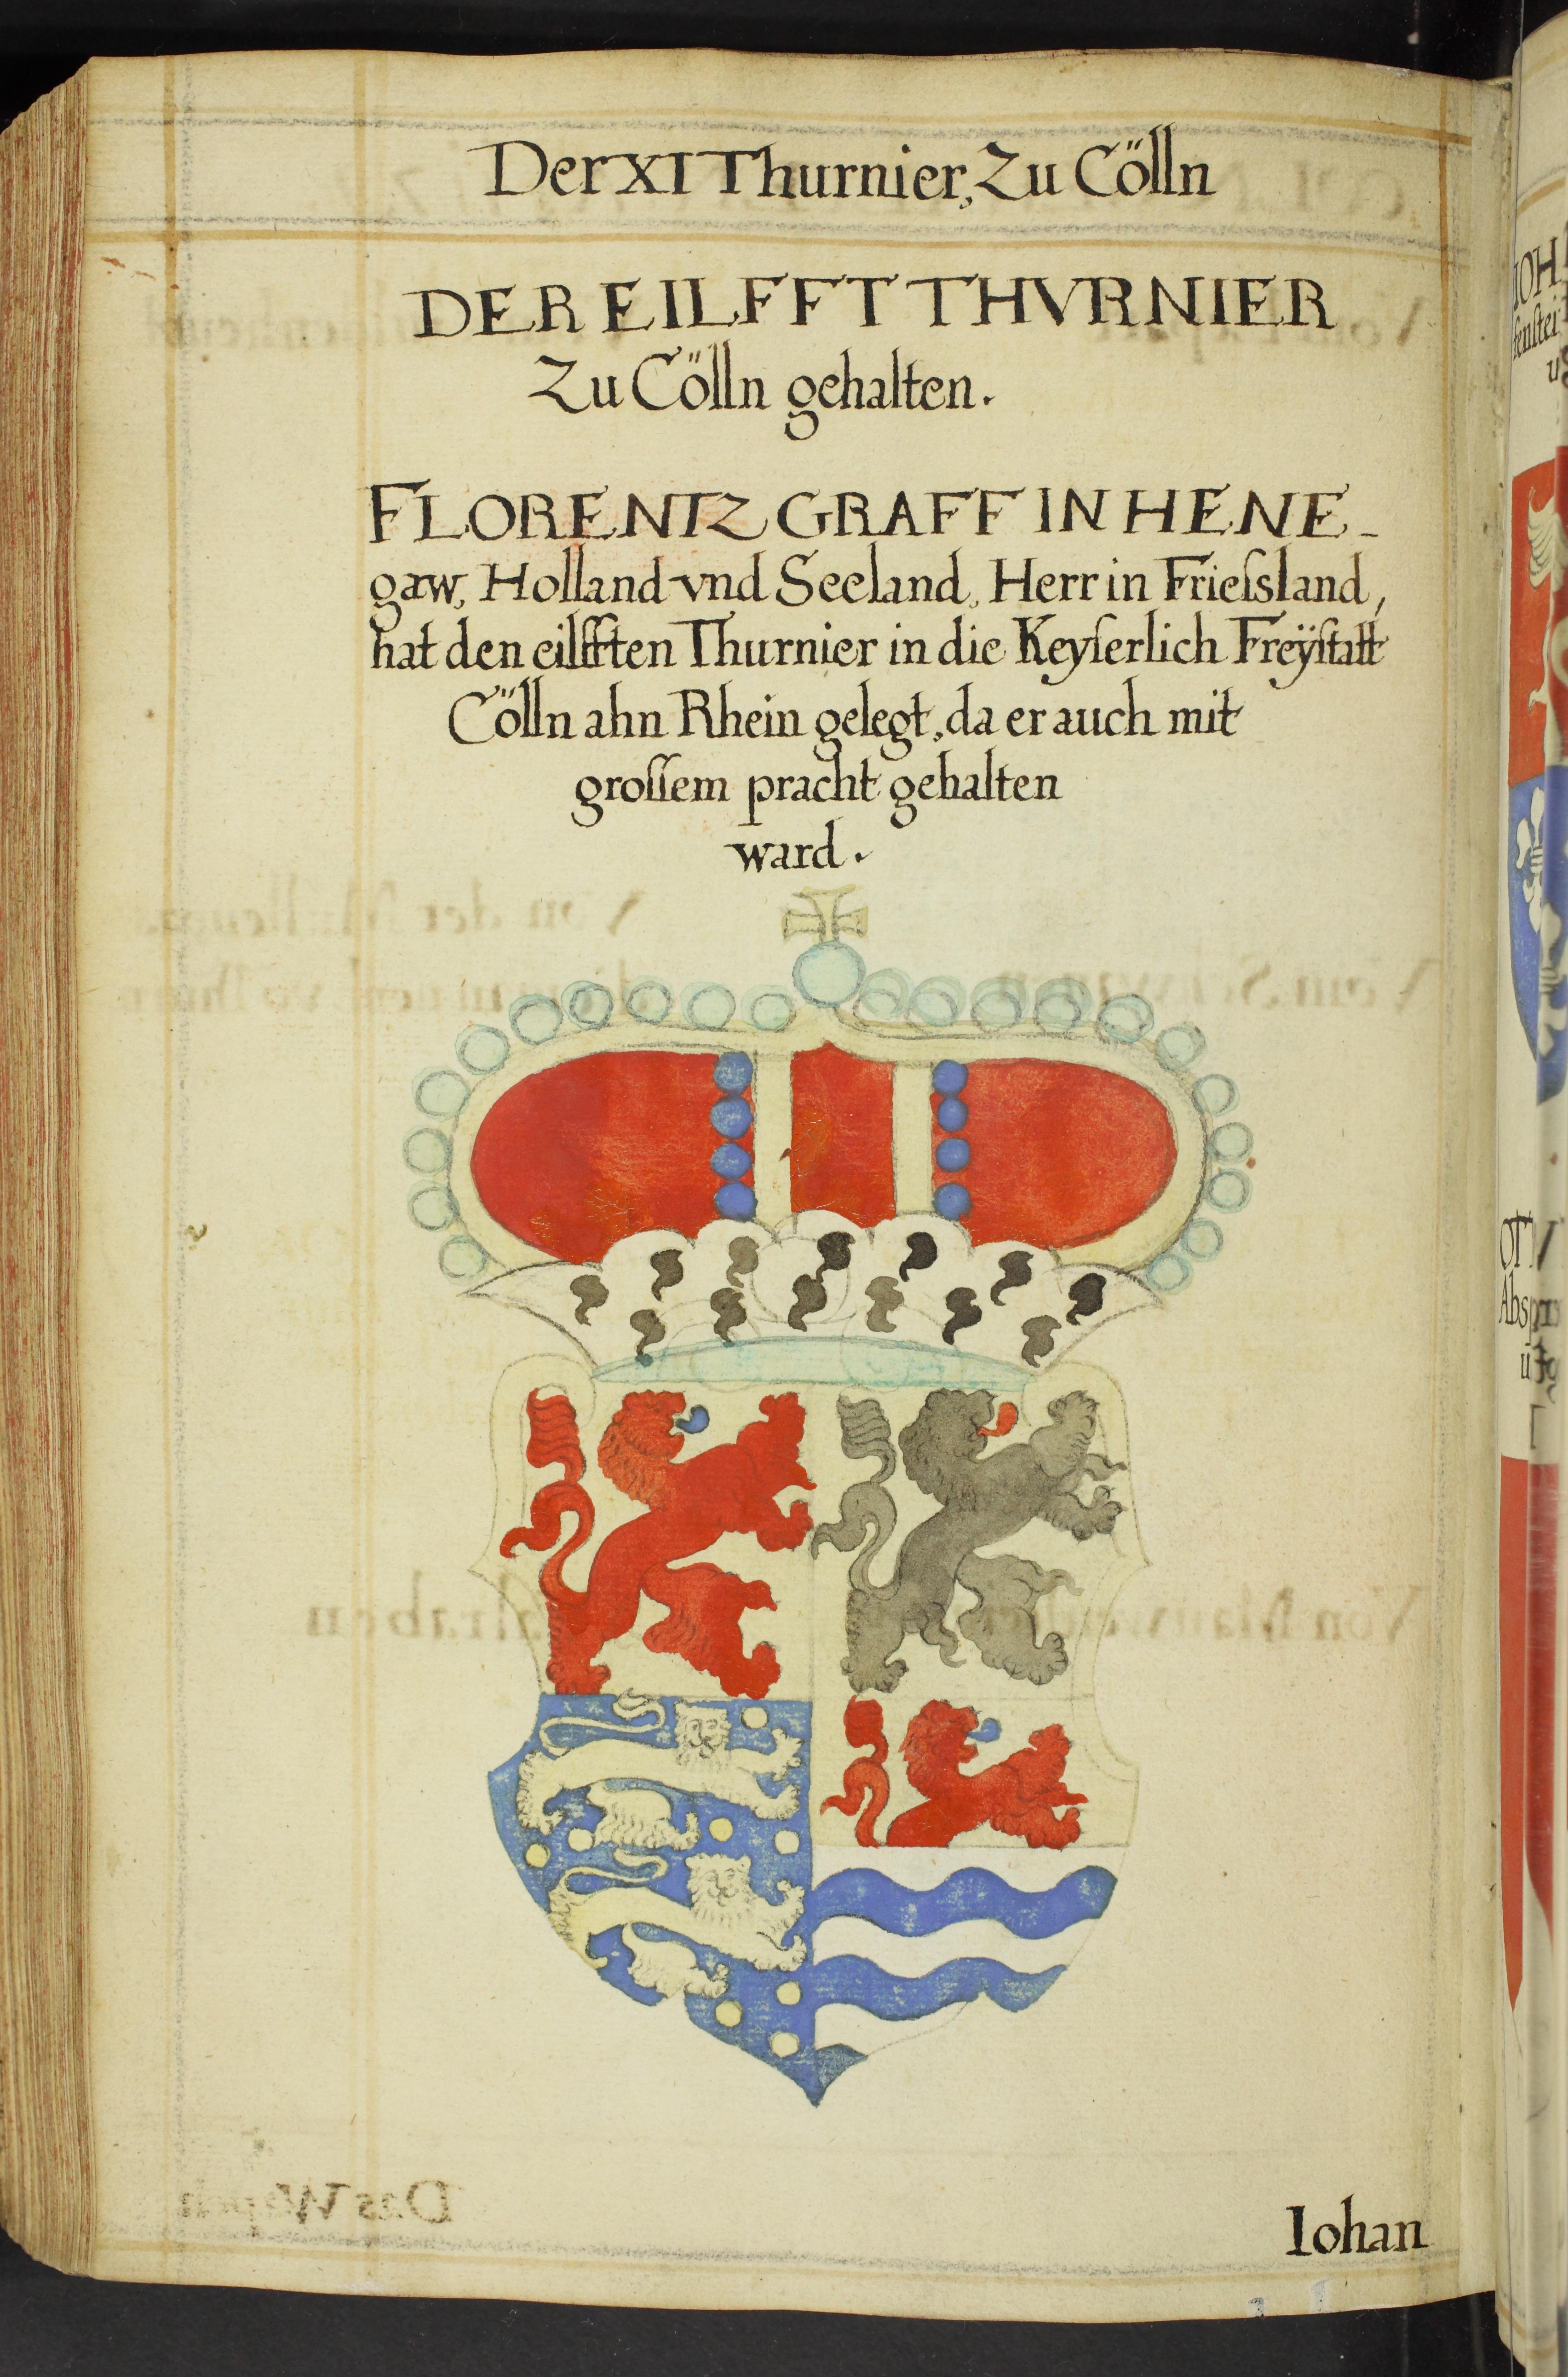 Der XI Thurnier, Zu Cölln
DER EILFFT THVRNIER
Zu Cölln gehalten.
FLORENTZ GRAFF IN HENE-
gaw, Holland vnd Seeland, Herr in Frieſsland,
hat den eilfften Thurnier in die Keyſerlich Freÿſtatt
Cölln ahn Rhein gelegt, da er auch mit
groſſem pracht gehalten
ward.
Iohan